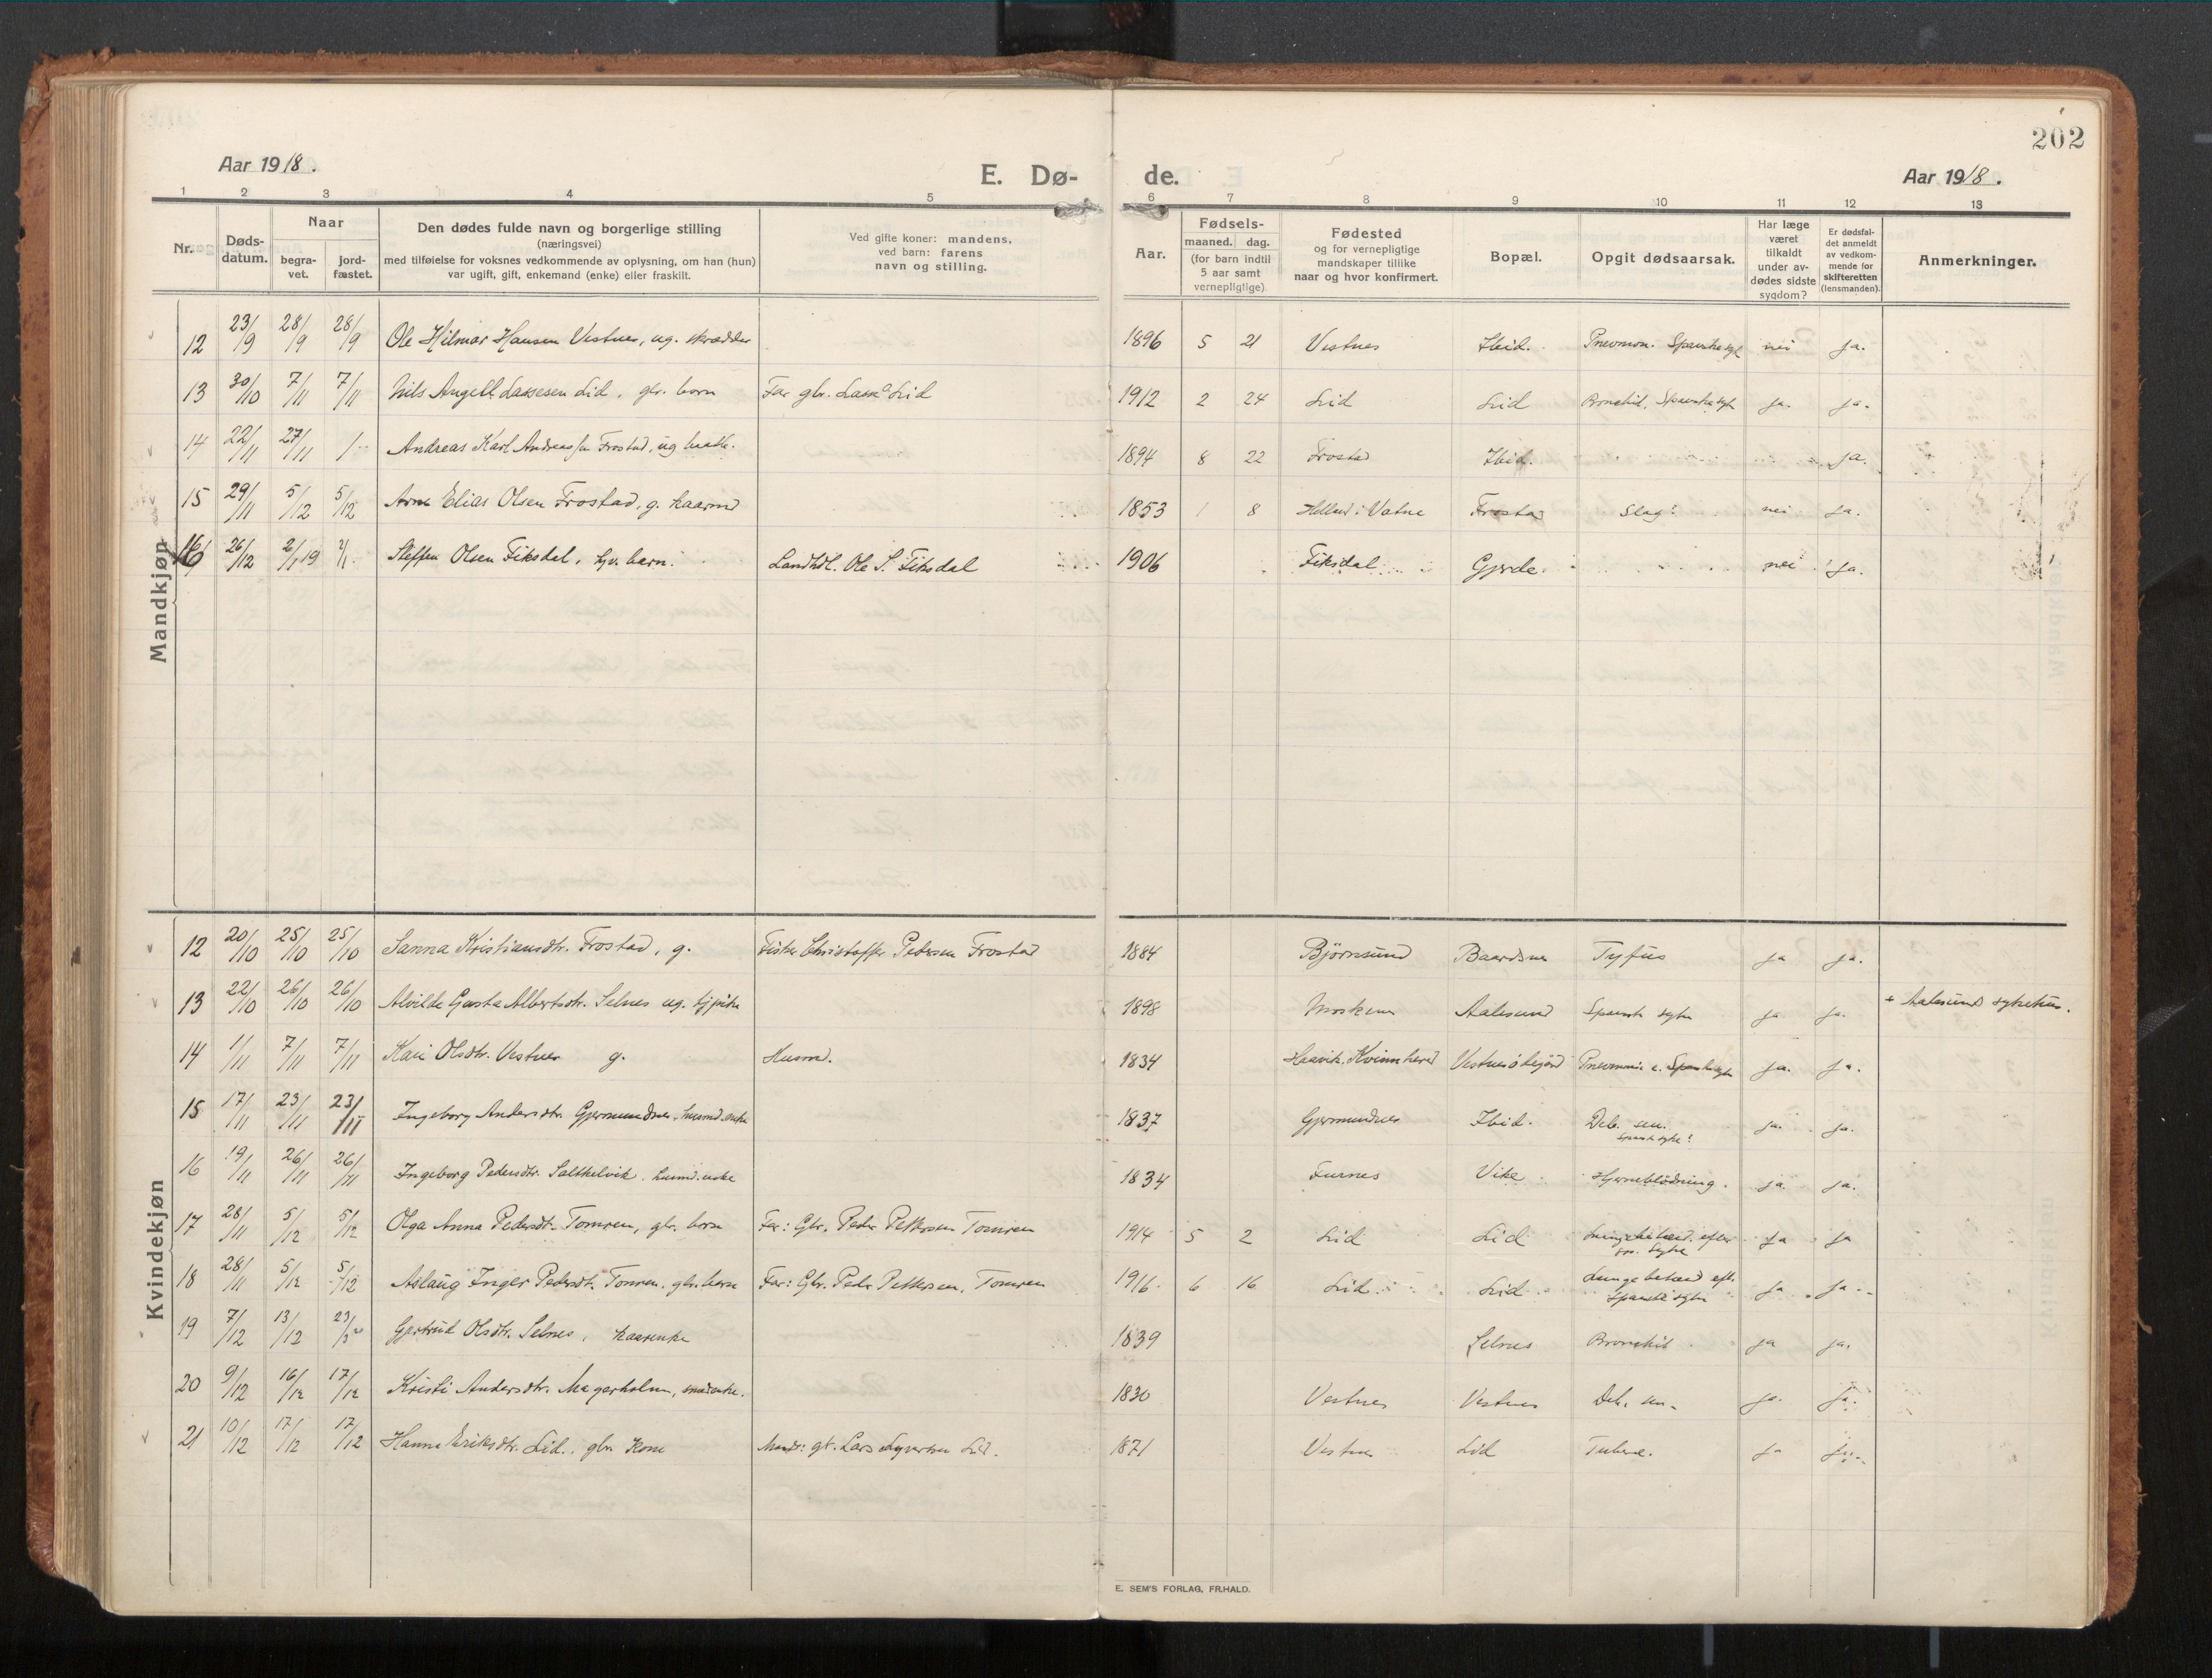 202
Aar 1918.
E. Dø-
de.
Aar 1918.
1 2 3 4 5 6 7 8 9 10 11 12 13
Nr.
Døds-
datum.
Naar
begra-
vet.
jord-
fæstet.
Den dødes fulde navn og borgerlige stilling
(næringsvei)
med tilføielse for voksnes vedkommende av oplysning, om han (hun)
var ugift, gift, enkemand (enke) eller fraskilt.
Ved gifte koner: mandens,
ved barn: farens
navn og stilling.
Aar.
Fødsels-
maaned. dag.
(for barn indtil
5 aar samt
vernepligtige)
Fødested
og for vernepligtige
mandskaper tillike
naar og hvor konfirmert.
Bopæl.
Opgit dødsaarsak.
Har læge
været
tilkaldt
under av-
dødes sidste
sygdom?
Er dødsfal-
det anmeldt
av vedkom-
mende for
skifteretten
(lensmanden).
Anmerkninger.
Mandkjøn
12 23/9 28/9 28/9 Ole Hilmar Hansen Vestnes, ug. skrædder 1896 5 21 Vestnes Ibid. Pneumon. Spanskesyk nei ja.
13 30/10 7/11 7/11 Nils Angell Lassesen Lid, gbr. barn Far gbr. Lasse Lid 1912 2 24 Lid Lid Bronchit, Spanskesyke ja. ja.
14 22/11 27/11 Andreas Karl Andreassen Frostad, ug. 1894 8 22 Frostad Ibid. ja.
15 29/11 5/12 5/12 Elias Olsen Frostad, g. kaarmd 1853 1 8 Helland i Vatne Frostad Slag? nei ja.
16 26/12 2/1 19 2/1 Steffen Olsen Fiksdal, barn. Landhdl. Ole S. Fiksdal 1906 Fiksdal Gjerde. nei ja.
Kvindekjøn
12 20/10 25/10 25/10 Sanna Kristiansdtr. Frostad, g. Fisker Christoffer Pedersen Frostad 1884 Bjørnsund Baardsnes Tyfus ja ja.
13 22/10 26/10 26/10 Alvilde Gusta Albertsdtr. Selnes ug. tjpike 1898 Aalesund Spansk syke ja ja. + Aalesunds sykehus.
14 1/11 7/11 7/11 Kari Olsdtr. Vestnes g. Husmd. 1834 Haavik, Kvinnhered Pneumoni e. Spanskesyke ja. ja.
15 17/11 23/11 23/11 Ingeborg Andersdtr. Gjermundnes, husmd. enke 1837 Gjermundnes Ibid. Deb. sen.
Spansk syke? ja. ja.
16 19/11 26/11 26/11 Ingeborg Pedersdtr. Saltkelvik, husmd. enke 1834 Furnes Vike Hjerneblødning. ja. ja.
17 28/11 5/12 5/12 Olga Anna Pedersdtr. Tomren, gbr. barn Far: Gbr. Peder Pettersen Tomren 1914 5 2 Lid Lid Lungebetænd. efter
sp. syke ja ja
18 28/11 5/12 5/12 Aslaug Inger Pedersdtr. Tomren, gbr. barn Far: Gbr. Peder Pettersen, Tomren 1916 6 16 Lid. Lid. Lungebetænd eft.
Spansk syke ja ja
19 7/12 13/12 23/3 Gjertrud Olsdtr. Selnes, kaarenke 1839 Selnes Bronchit ja ja.
20 9/12 16/12 17/12 Kristi Andersdtr. Magerholm, 1830 Vestnes Vestnes Deb. sen. ja. ja.
21 10/12 17/12 17/12 Hanna Eriksdtr. Lid, gbr. kone Mand: gbr. Lars Syvertsen Lid. 1871 Vestnes Lid Tuberc. ja ja.
E. SEM'S FORLAG, FR.HALD.